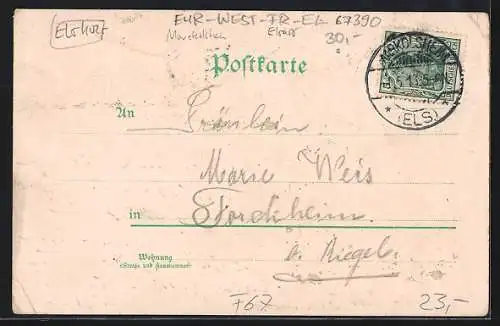 Elshof
EUR-WEST-FR-EL 67390
Marckolsheim Elsass
30,-
Postkarte
MARKOLSHEIM
(ELS)
An Fräulein
Marie Weis
in Forchheim
Wohnung
(Straße und Hausnummer)
a. Riegel.
F67
23,-